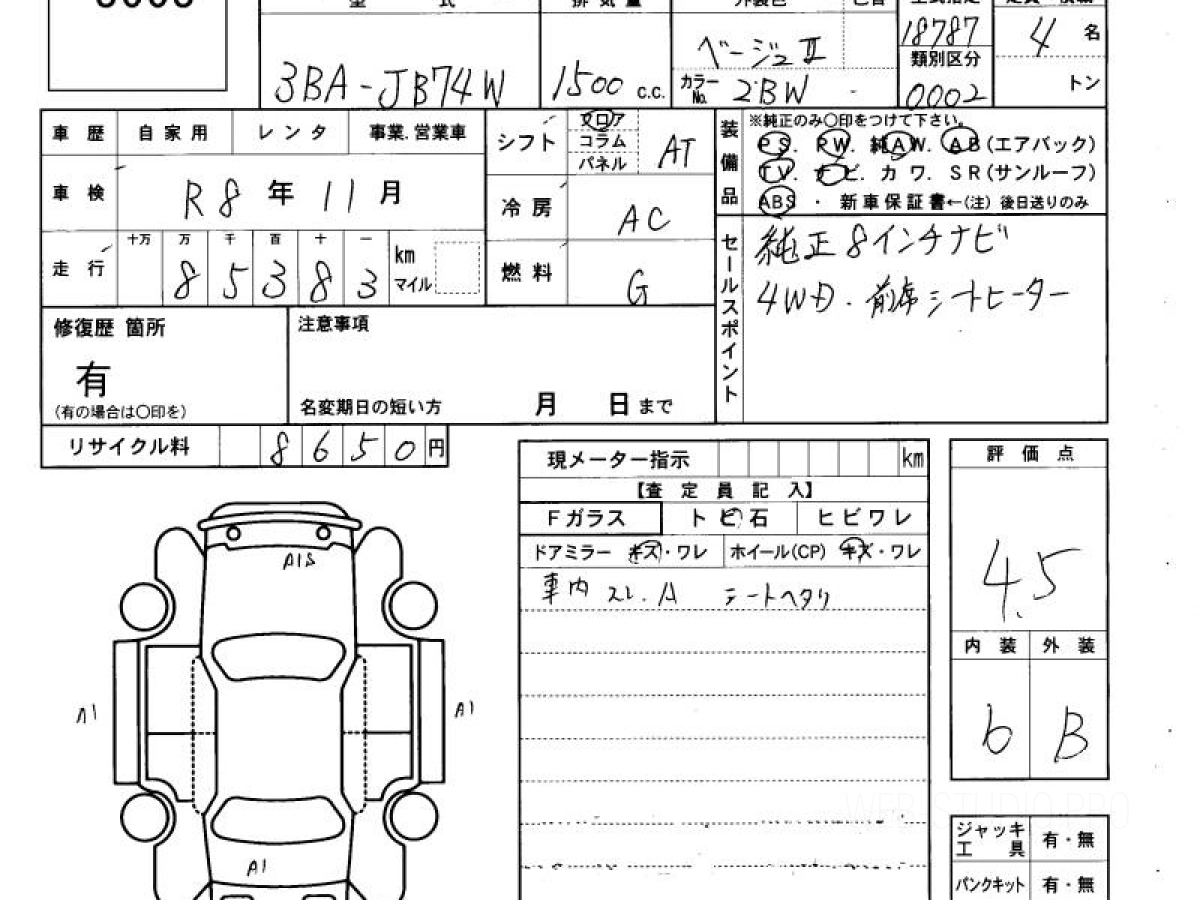 型 式 排 気 量
3BA-JB74W 1500 c.c.
ベージュⅡ
カラーNo. 2BW
18787
類別区分
0002
4 名
トン
車 歴 自 家 用 レ ン タ 事業.営業車
車 検 R8 年 11 月
走 行 十万 万 千 百 十 一
8 5 3 8 3 km マイル
シフト フロア コラム パネル AT
冷 房 AC
燃 料 G
装備品
※純正のみ〇印をつけて下さい。
PS. PW. 純AW. AB(エアバック)
TV. ナビ. カ ワ. SR(サンルーフ)
ABS ・ 新 車 保 証 書←(注) 後日送りのみ
セールスポイント
純正8インチナビ
4WD. 前席シートヒーター
修復歴 箇所
有
(有の場合は〇印を)
注意事項
名変期日の短い方 月 日 まで
リサイクル料 8650円
現メーター指示 km
【査 定 員 記 入】
Fガラス ト ビ 石 ヒ ビ ワ レ
ドアミラー キズ・ワレ ホイール(CP) キズ・ワレ
車内 スレ.A シートヘタリ
評 価 点
4.5
内 装 外 装
b B
A1
A1
A1
ジャッキ 工 具 有・無
パンクキット 有・無
WEB STUDIO PRO